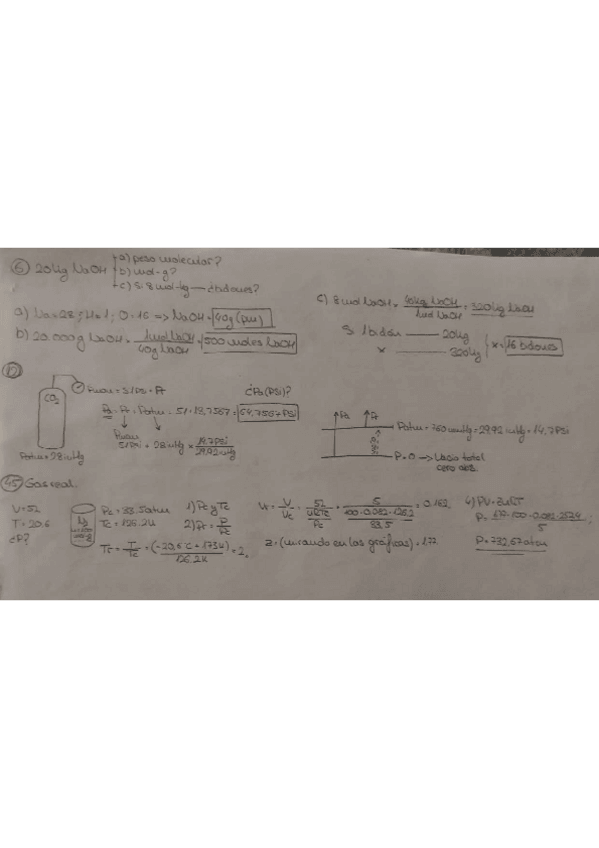 ⑥ 20kg NaOH
a) peso molecular?
b) mol-g?
c) Si 8 mol-kg — ¿bidones?
a) Na=28; H=1; O=16 => NaOH = 40g (pm)
b) 20.000g NaOH × 1mol NaOH / 40g NaOH = 500 moles NaOH
c) 8 mol NaOH × 40kg NaOH / 1mol NaOH = 320kg NaOH
Si 1 bidón — 20kg
x — 320kg
x = 16 bidones
CO2
Pman = 51 Psi = Pr
¿Pa (Psi)?
Pa = Pr + Patm = 51 + 13,7567 = 64,7567 Psi
Pman
51 Psi
28 inHg × 14.7 Psi / 29.92 inHg
Patm = 28 inHg
Pa
Pr
Patm = 760 mmHg = 29.92 inHg = 14.7 Psi
P=0 → Vacío total
cero abs.
④⑤ Gas real.
V=5L
T=20.6
¿P?
Pc = 33.5 atm
Tc = 126.2K
1) Pc y Tc
2) Pr = P / Pc
Tr = T / Tc = (-20,6°C + 273K) / 126.2K = 2,
Vr = V / Vc = 5L / nRTc / Pc = 5 / 100 · 0.082 · 126.2 / 33.5 = 0.162
z = (mirando en las gráficas) = 1.77
4) PV = znRT
P = 100 · 0.082 · 252,4 / 5 ;
P = 732,67 atm